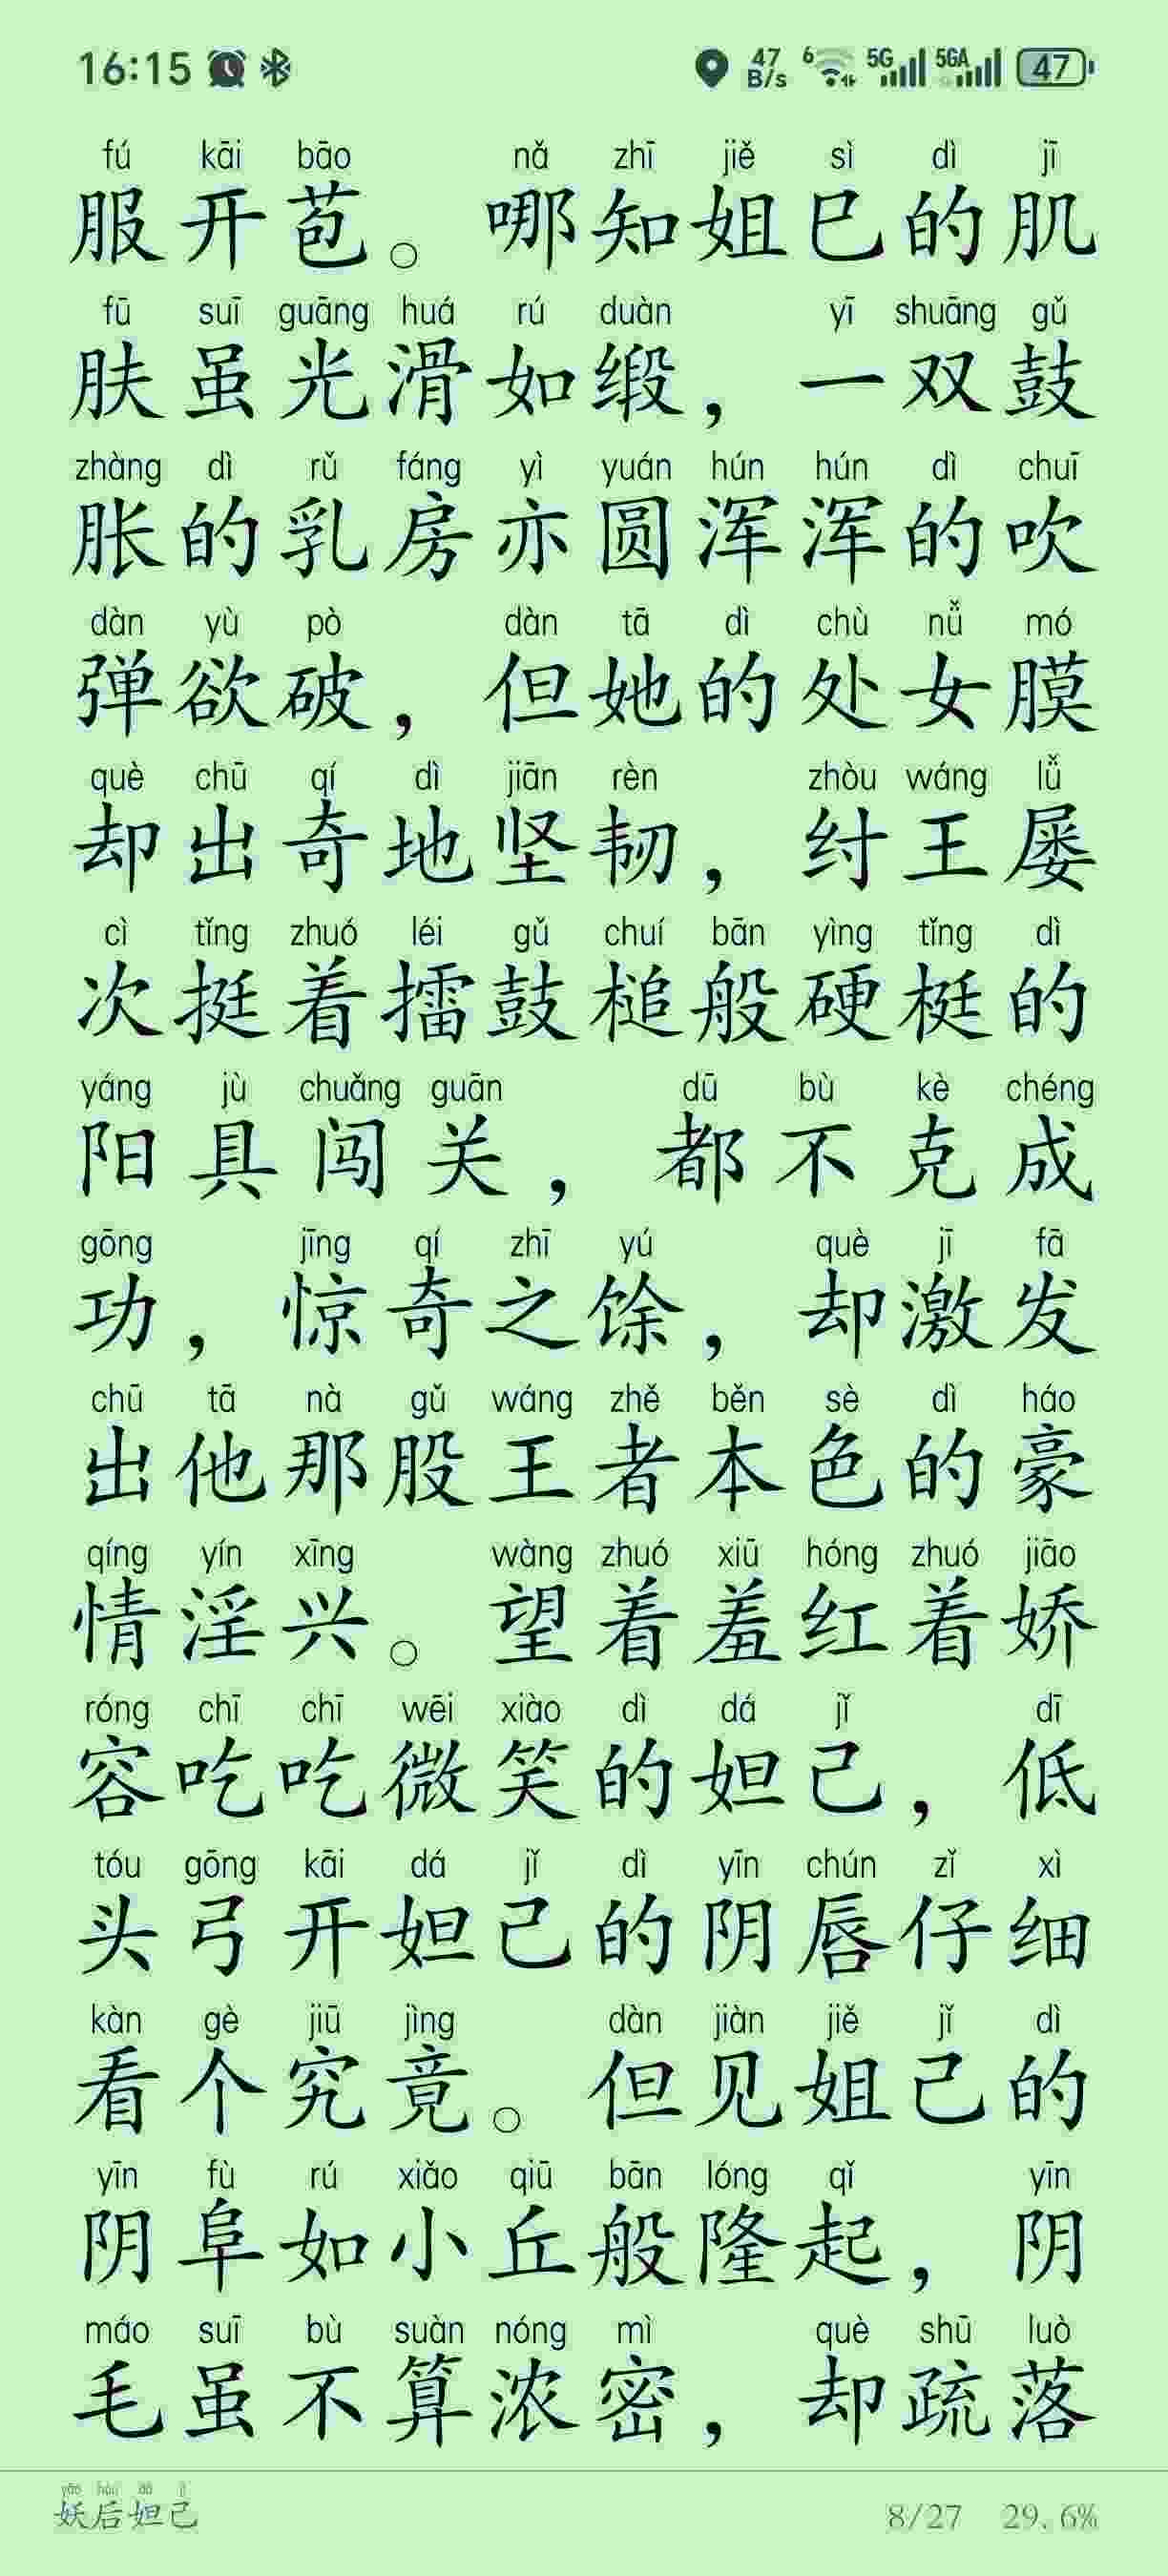 16:15 47 B/s 6 5G 5GA 47
fú kāi bāo nǎ zhī jiě sì dì jī
服开苞。哪知姐巳的肌
fū suī guāng huá rú duàn yī shuāng gǔ
肤虽光滑如缎，一双鼓
zhàng dì rǔ fáng yì yuán hún hún dì chuī
胀的乳房亦圆浑浑的吹
dàn yù pò dàn tā dì chù nǚ mó
弹欲破，但她的处女膜
què chū qí dì jiān rèn zhòu wáng lǚ
却出奇地坚韧，纣王屡
cì tǐng zhuó léi gǔ chuí bān yìng tǐng dì
次挺着擂鼓槌般硬梃的
yáng jù chuǎng guān dū bù kè chéng
阳具闯关，都不克成
gōng jīng qí zhī yú què jī fā
功，惊奇之馀，却激发
chū tā nà gǔ wáng zhě běn sè dì háo
出他那股王者本色的豪
qíng yín xīng wàng zhuó xiū hóng zhuó jiāo
情淫兴。望着羞红着娇
róng chī chī wēi xiào dì dá jǐ dī
容吃吃微笑的妲己，低
tóu gōng kāi dá jǐ dì yīn chún zǐ xì
头弓开妲己的阴唇仔细
kàn gè jiū jìng dàn jiàn jiě jǐ dì
看个究竟。但见姐己的
yīn fù rú xiǎo qiū bān lóng qǐ yīn
阴阜如小丘般隆起，阴
máo suī bù suàn nóng mì què shū luò
毛虽不算浓密，却疏落
yāo hòu dá jǐ
妖后妲己 8/27 29.6%